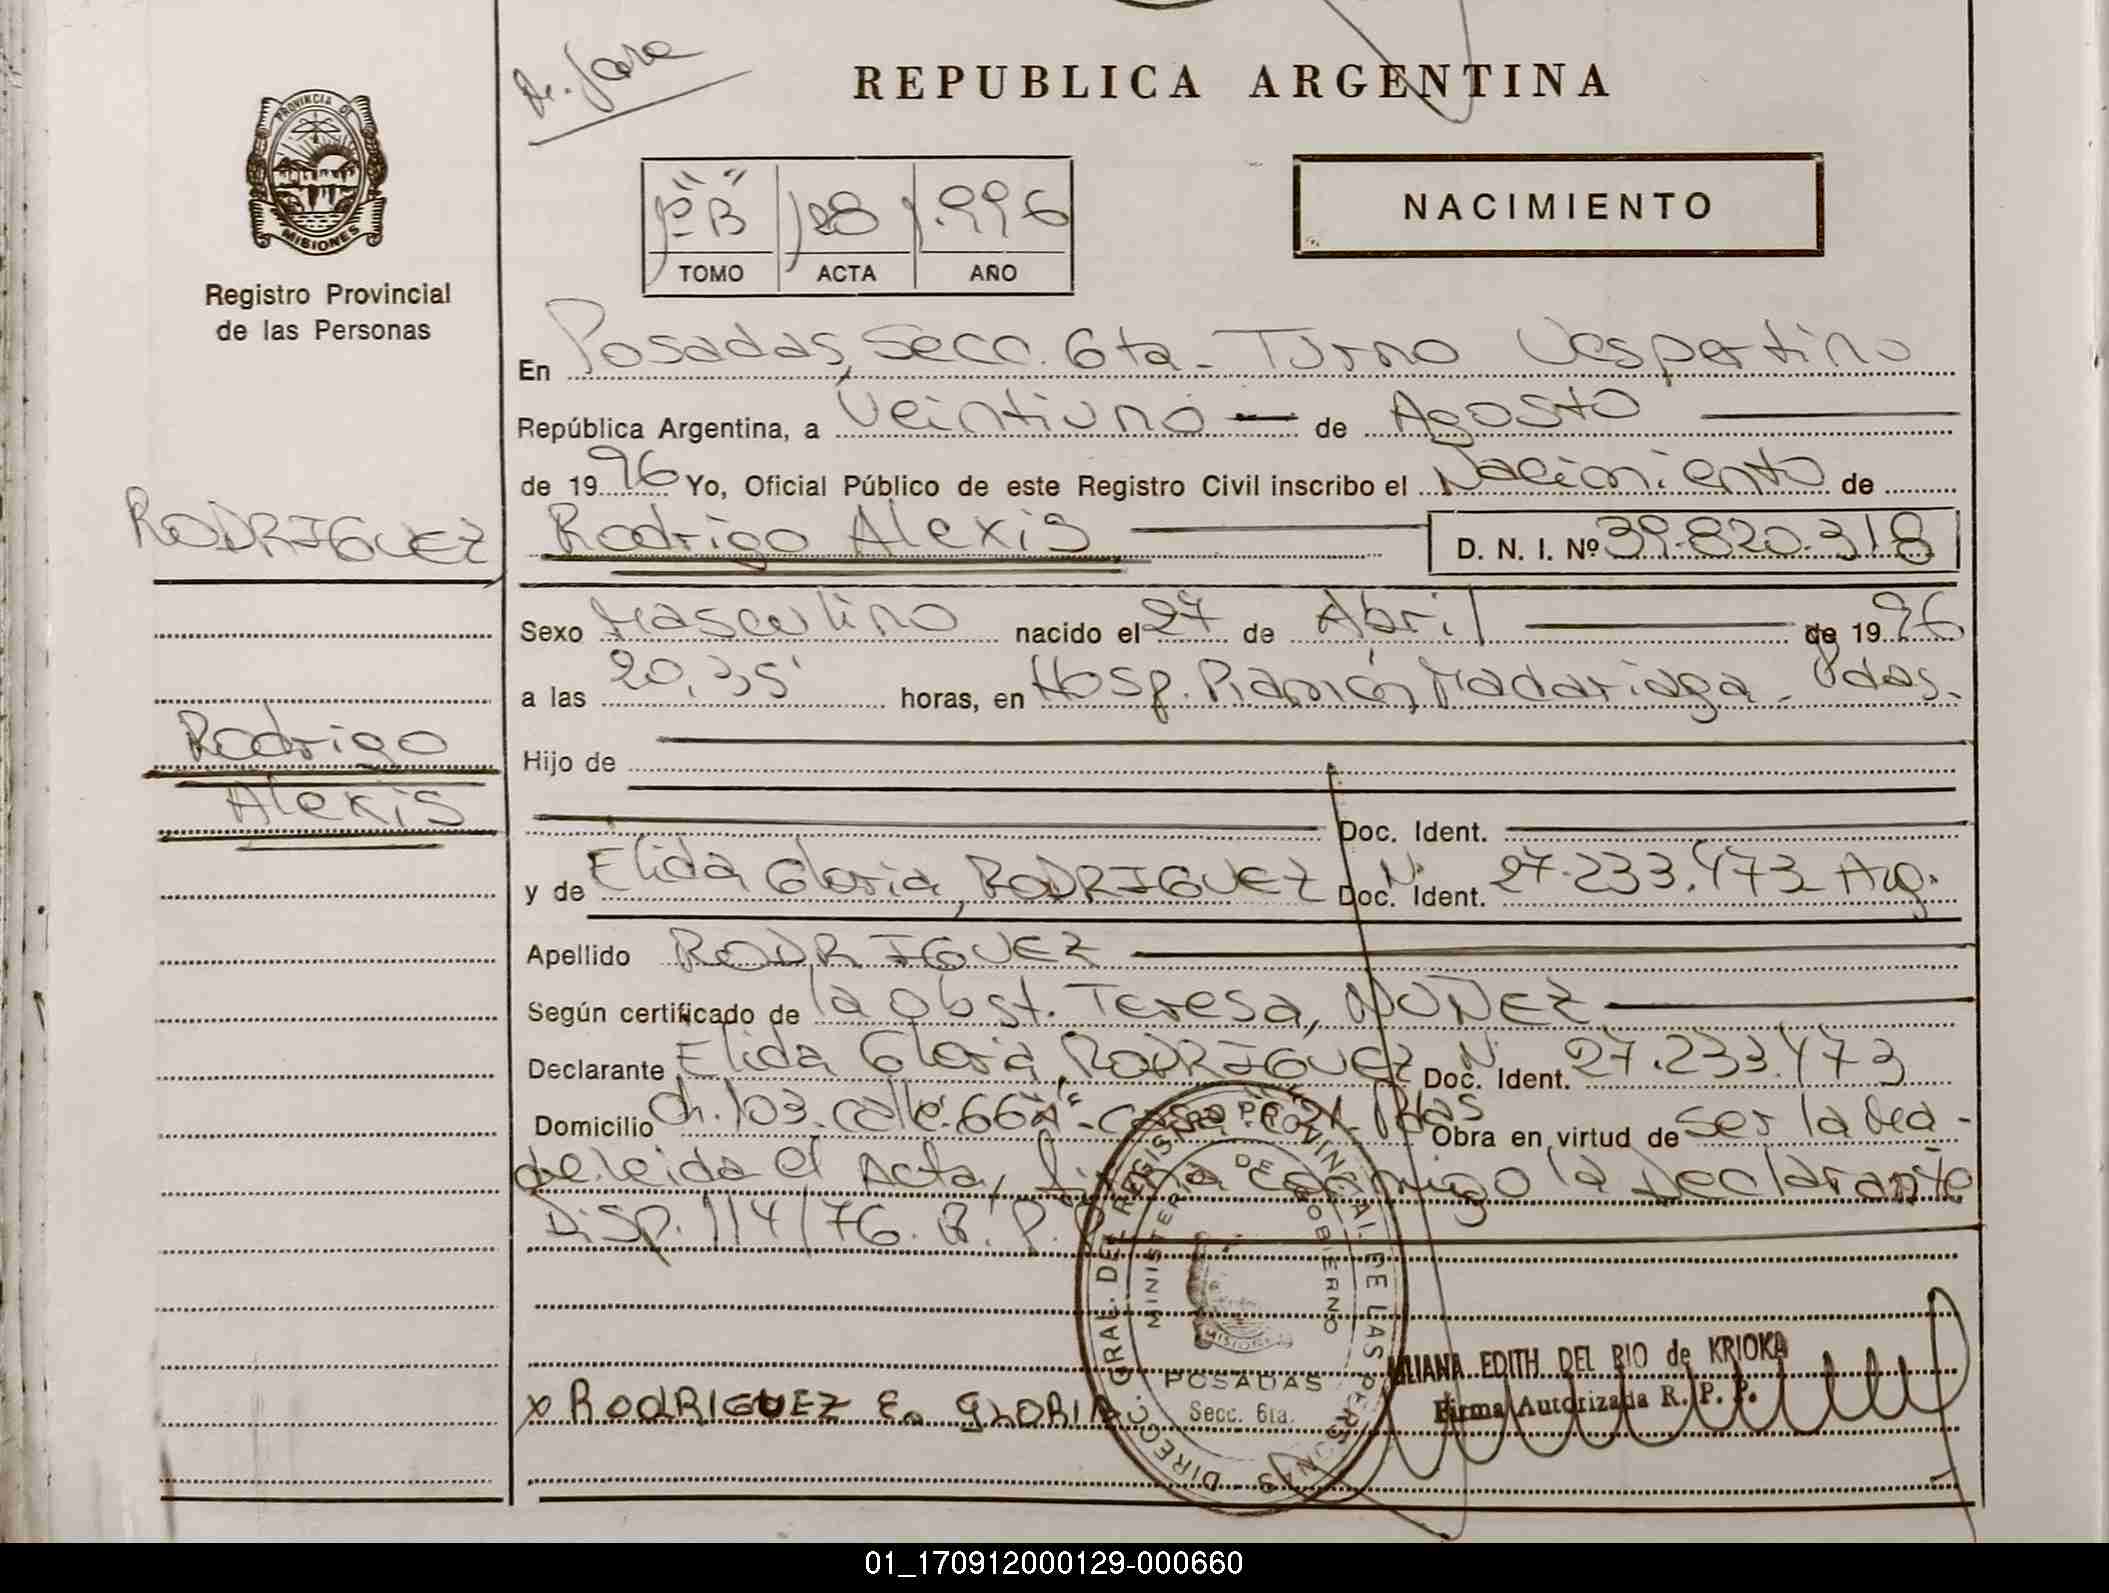 De. Jara
REPUBLICA ARGENTINA
PROVINCIA DE
MISIONES
Registro Provincial
de las Personas
1º "B" 128 1.996
TOMO ACTA AÑO
NACIMIENTO
En Posadas, Secc. 6ta - Turno Vespertino
República Argentina, a Veintiuno de Agosto
de 1996 Yo, Oficial Público de este Registro Civil inscribo el Nacimiento de
RODRIGUEZ
Rodrigo Alexis D. N. I. Nº 39.820.318
Sexo Masculino nacido el 27 de Abril de 1996
a las 20,35' horas, en Hosp. Ramón Madariaga - Pdas.
Rodrigo
Alexis
Hijo de
Doc. Ident.
y de Elida Gloria, RODRIGUEZ Doc. Ident. Nº 27.233.473 Arg.
Apellido RODRIGUEZ
Según certificado de la Obst. Teresa, NUÑEZ
Declarante Elida Gloria, RODRIGUEZ Doc. Ident. Nº 27.233.473
Domicilio Ch. 103. calle. 66 "A" - casa Pdas Obra en virtud de ser la Ma-
dre. leida el Acta, firma conmigo la Declarante
Disp. 114/76. R. P. P.
DIRECC. GRAL. DEL REGISTRO PROVINCIAL DE LAS PERSONAS
MINISTERIO DE GOBIERNO
MISIONES
POSADAS
Secc. 6ta.
LILIANA EDITH DEL RIO de KRIOKA
Firma Autorizada R. P. P.
x RODRIGUEZ E. GLORIA
01_170912000129-000660